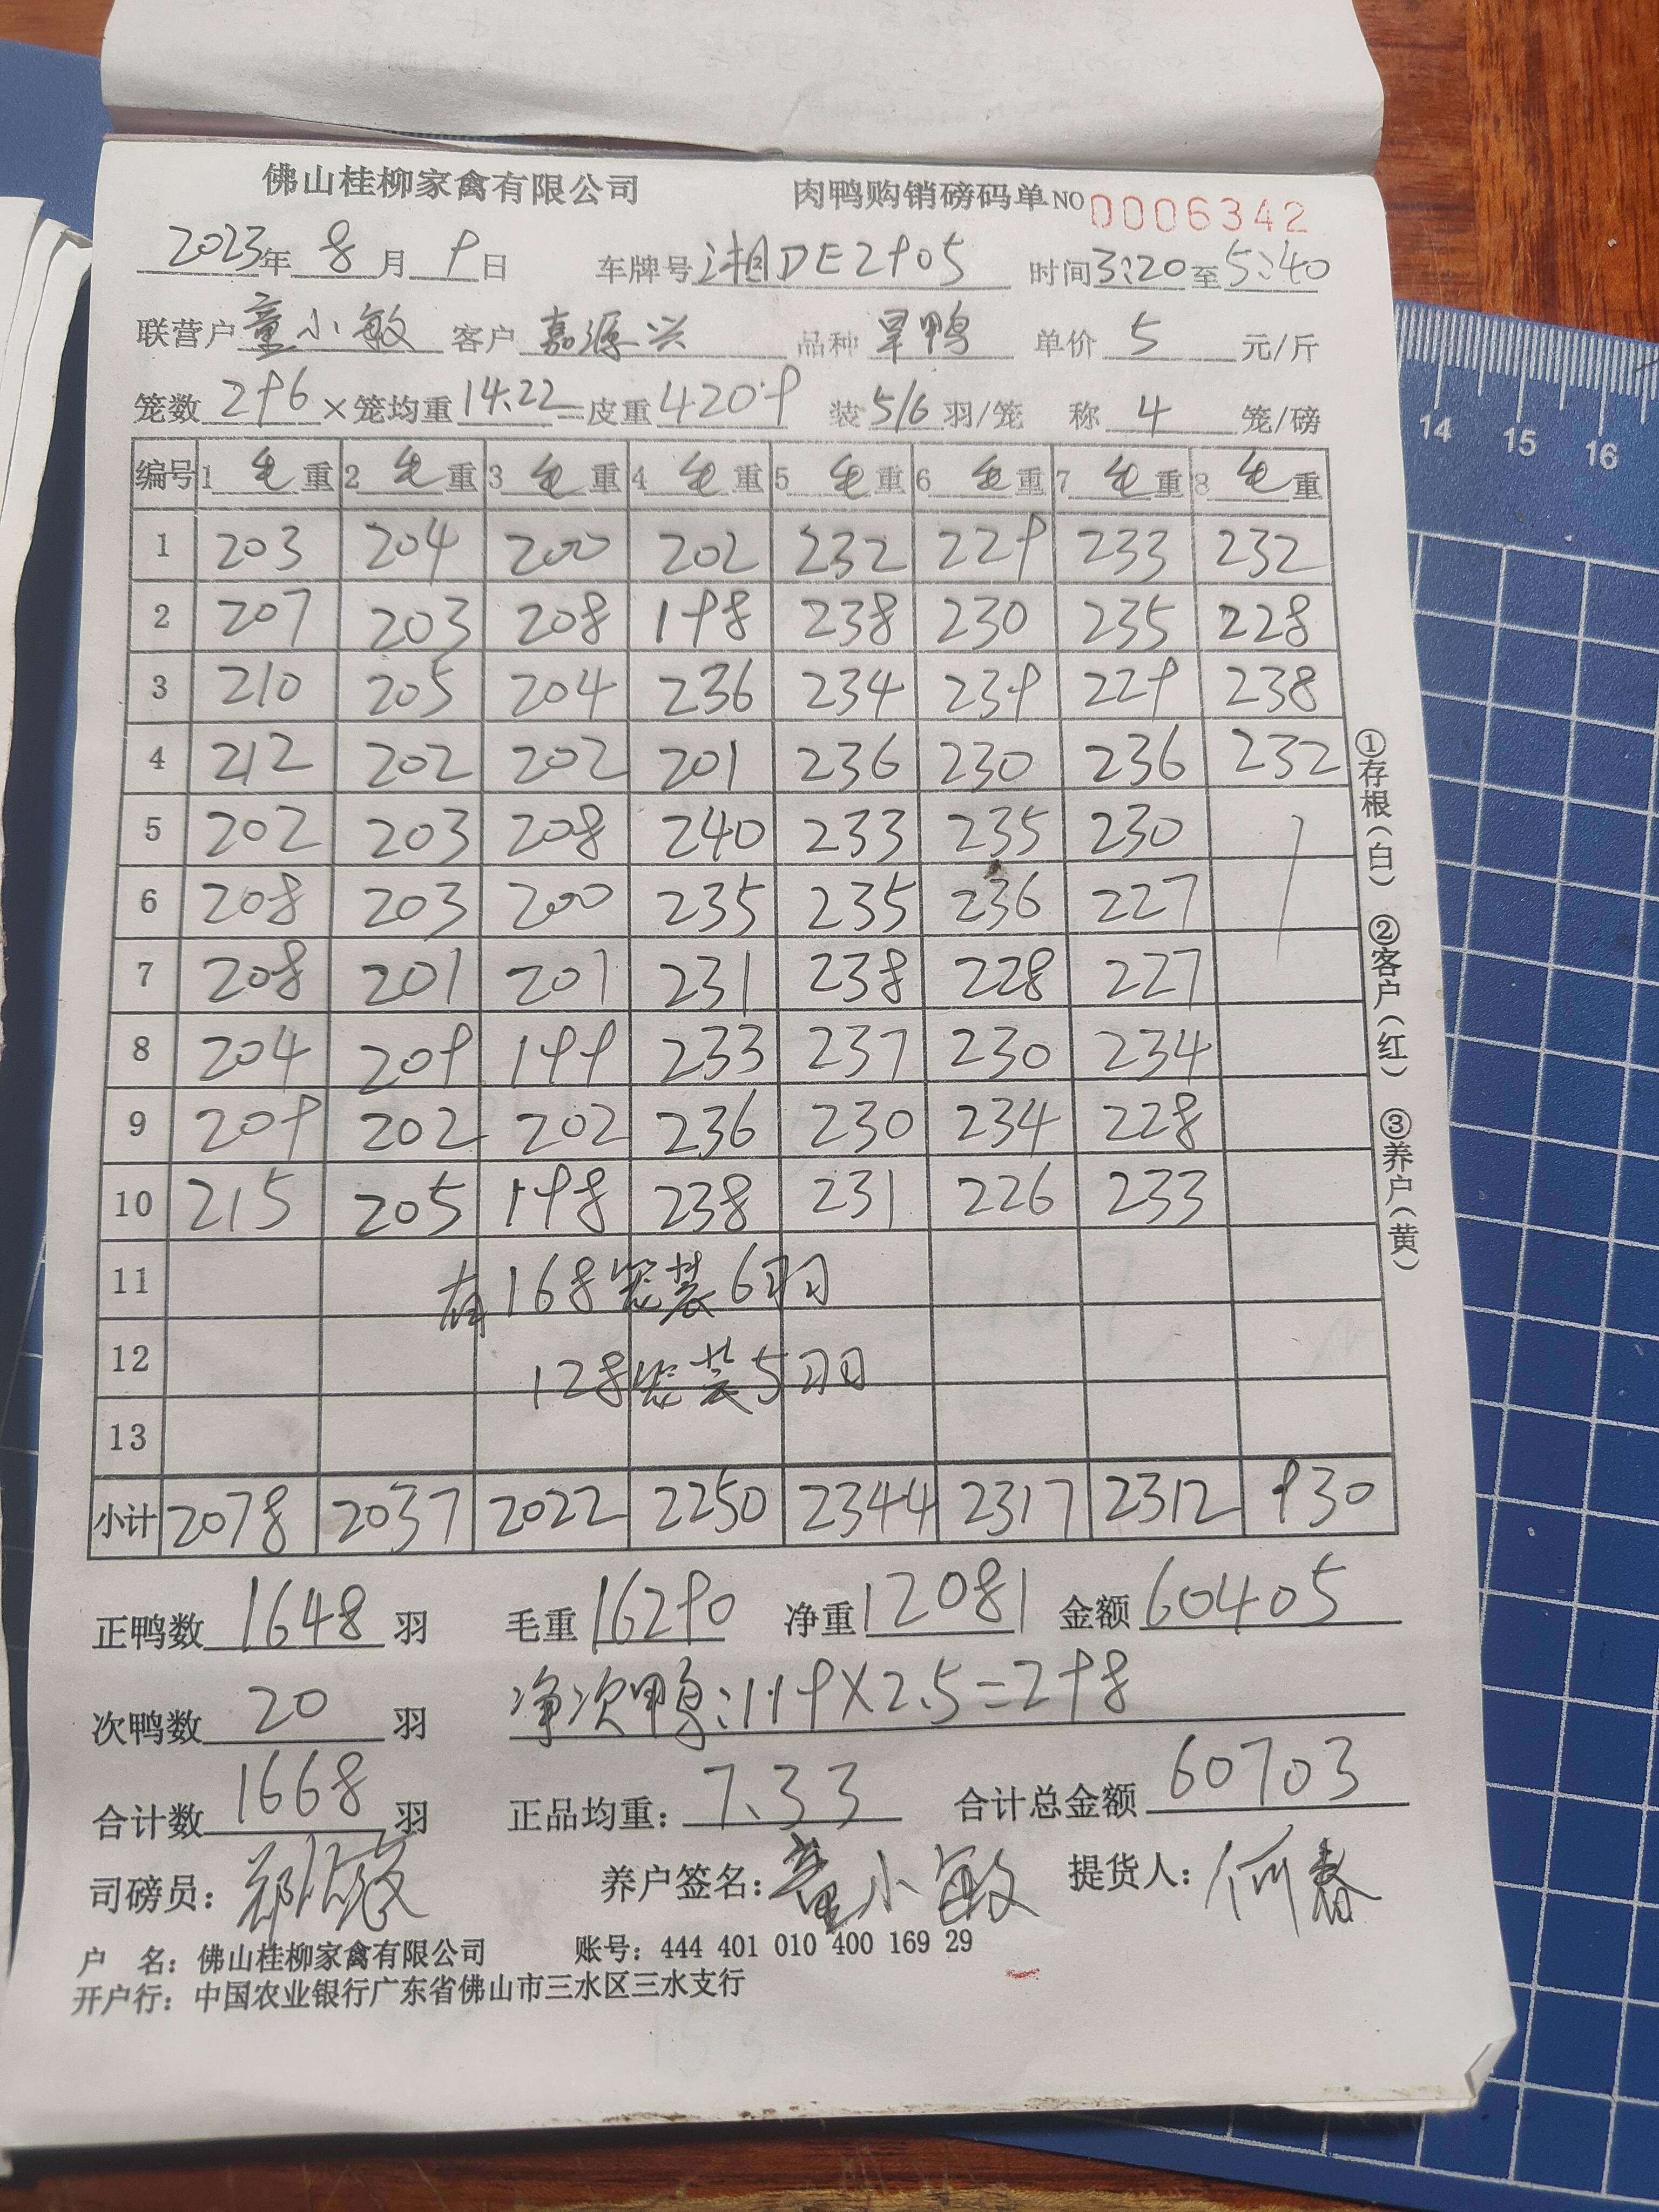 佛山桂柳家禽有限公司 肉鸭购销磅码单 NO 0006342
2023年 8 月 9 日 车牌号 湘DE2905 时间 3:20 至 5:40
联营户 童小敏 客户 嘉源兴 品种 旱鸭 单价 5 元/斤
笼数 296 ×笼均重 14.22 =皮重 4209 装 5/6 羽/笼 称 4 笼/磅
编号 1 毛重 2 毛重 3 毛重 4 毛重 5 毛重 6 毛重 7 毛重 8 毛重
1 203 204 200 202 232 229 233 232
2 207 203 208 198 238 230 235 228
3 210 205 204 236 234 239 229 238
4 212 202 202 201 236 230 236 232
5 202 203 208 240 233 235 230
6 208 203 200 235 235 236 227
7 208 201 201 231 238 228 227
8 204 209 199 233 237 230 234
9 209 202 202 236 230 234 228
10 215 205 198 238 231 226 233
11 有168笼装6羽
12 128笼装5羽
13
小计 2078 2037 2022 2250 2344 2317 2312 930
正鸭数 1648 羽 毛重 16290 净重 12081 金额 60405
次鸭数 20 羽 净次鸭:119×2.5=298
合计数 1668 羽 正品均重: 7.33 合计总金额 60703
司磅员: 养户签名: 童小敏 提货人: 何春
户 名: 佛山桂柳家禽有限公司 账号: 444 401 010 400 169 29
开户行: 中国农业银行广东省佛山市三水区三水支行
①存根(白) ②客户(红) ③养户(黄)
14 15 16